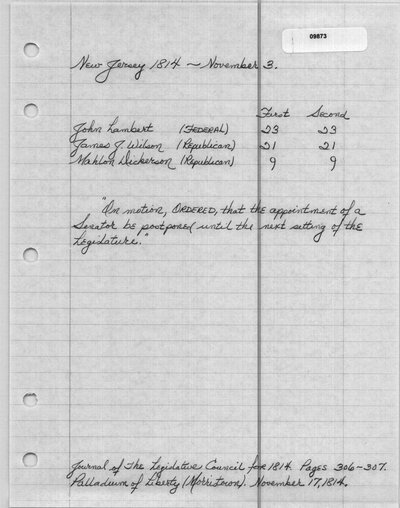 09873
New Jersey 1814 ~ November 3.
First Second
John Lambert (FEDERAL) 23 23
James J. Wilson (Republican) 21 21
Mahlon Dickerson (Republican) 9 9
"On motion, ORDERED, that the appointment of a
Senator be postponed until the next sitting of the
Legislature."
Journal of The Legislative Council for 1814. Pages 306-307.
Palladium of Liberty (Morristown). November 17, 1814.